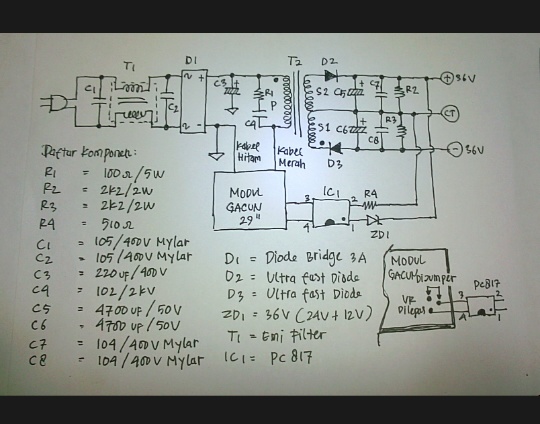 T1
D1
T2
D2
C1
C2
C3
R1
P
C4
S2
C5
C7
R2
+ 36V
CT
S1
C6
C8
R3
- 36V
D3
Kabel
Hitam
Kabel
Merah
MODUL
GACUN
29"
3
4
IC1
2
1
R4
ZD1
Daftar Komponen:
R1 = 100Ω/5W
R2 = 2K2/2W
R3 = 2K2/2W
R4 = 510Ω
C1 = 105/400V Mylar
C2 = 105/400V Mylar
C3 = 220uF/400V
C4 = 102/2KV
C5 = 4700uF/50V
C6 = 4700uF/50V
C7 = 104/400V Mylar
C8 = 104/400V Mylar
D1 = Diode Bridge 3A
D2 = Ultra fast Diode
D3 = Ultra fast Diode
ZD1 = 36V (24V+12V)
T1 = Emi Filter
IC1 = PC817
MODUL
GACUN
Dijumper
VR
Dilepas
3
4
PC817
2
1